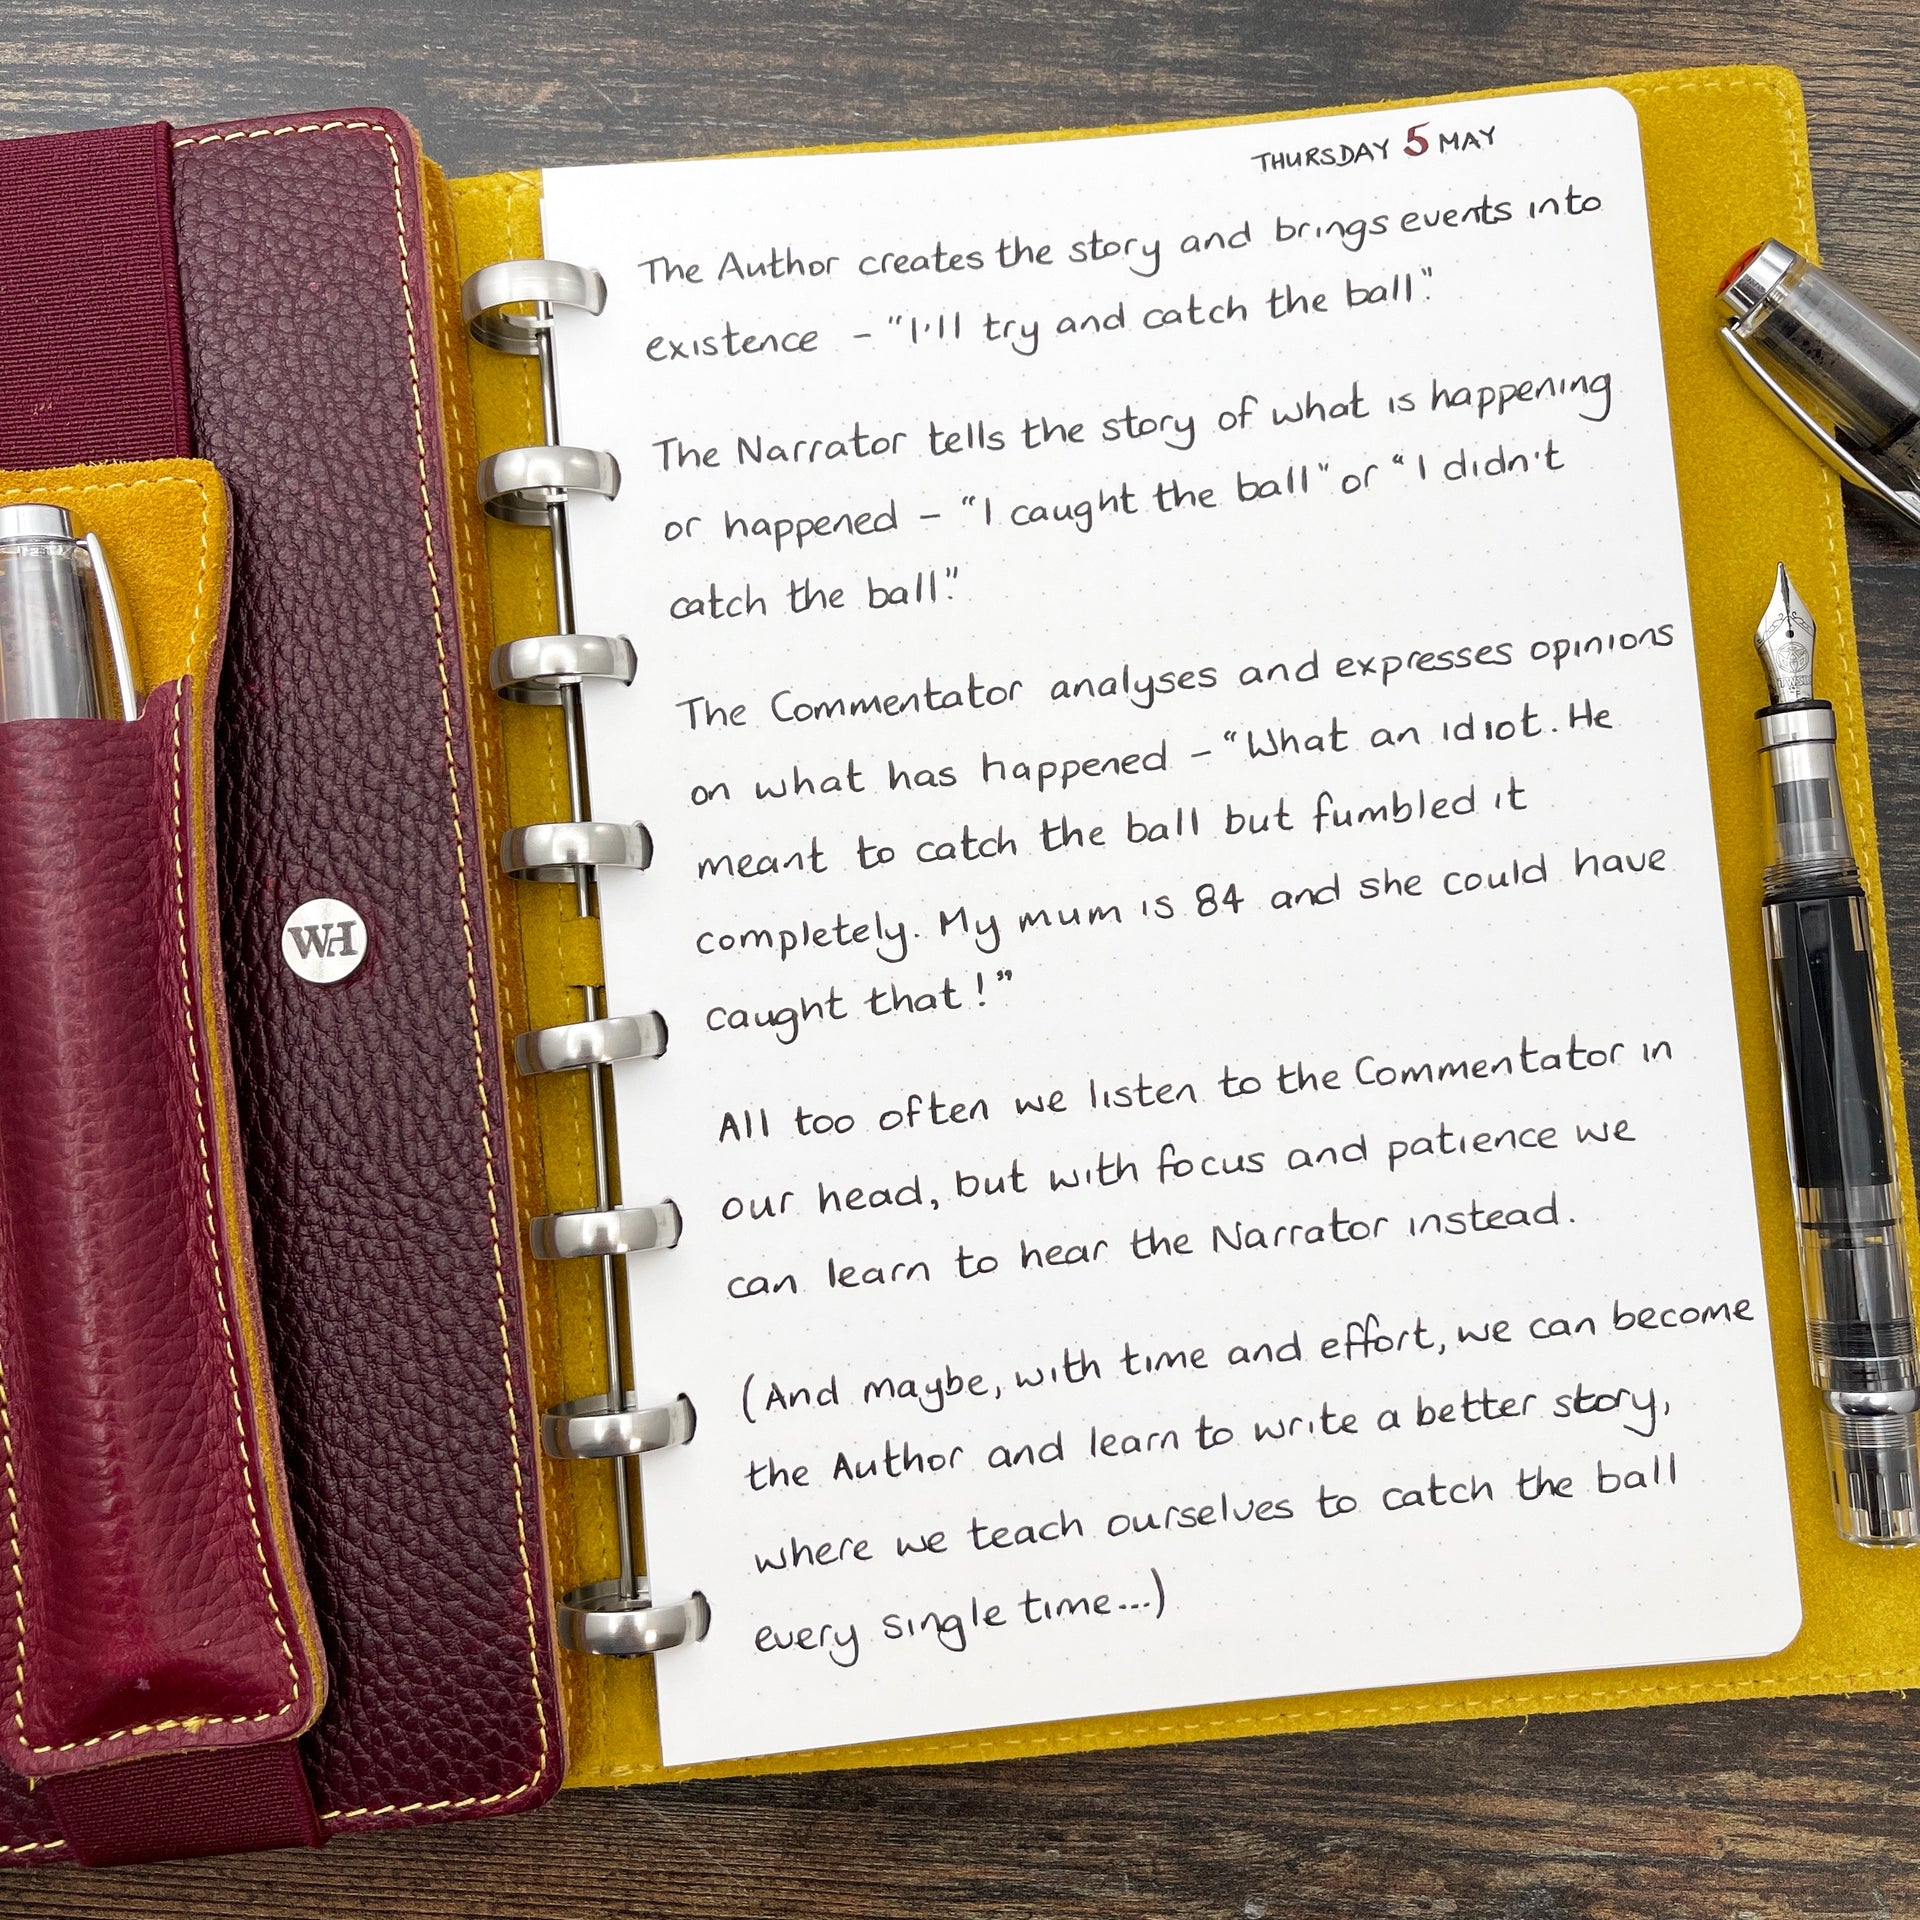 THURSDAY 5 MAY
The Author creates the story and brings events into
existence - "I'll try and catch the ball."
The Narrator tells the story of what is happening
or happened - "I caught the ball" or "I didn't
catch the ball."
The Commentator analyses and expresses opinions
on what has happened - "What an idiot. He
meant to catch the ball but fumbled it
completely. My mum is 84 and she could have
caught that!"
All too often we listen to the Commentator in
our head, but with focus and patience we
can learn to hear the Narrator instead.
(And maybe, with time and effort, we can become
the Author and learn to write a better story,
where we teach ourselves to catch the ball
every single time...)
WH